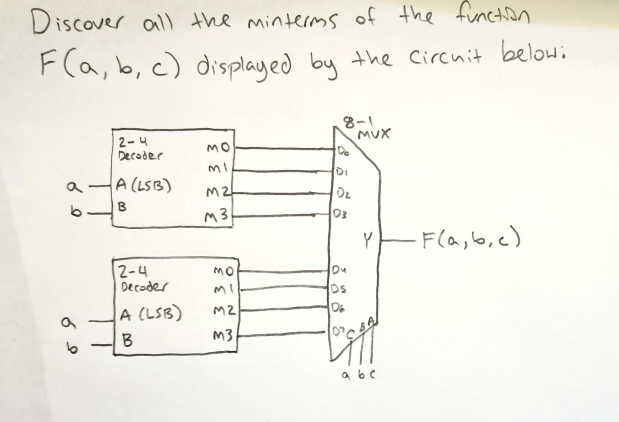 Discover all the minterms of the function
F(a, b, c) displayed by the circuit below:
8-1
MUX
2-4
Decoder
M0
M1
a
A (LSB)
M2
b
B
M3
D0
D1
D2
D3
Y
F(a,b,c)
2-4
Decoder
M0
M1
a
A (LSB)
M2
b
B
M3
D4
D5
D6
D7
C B A
a b c